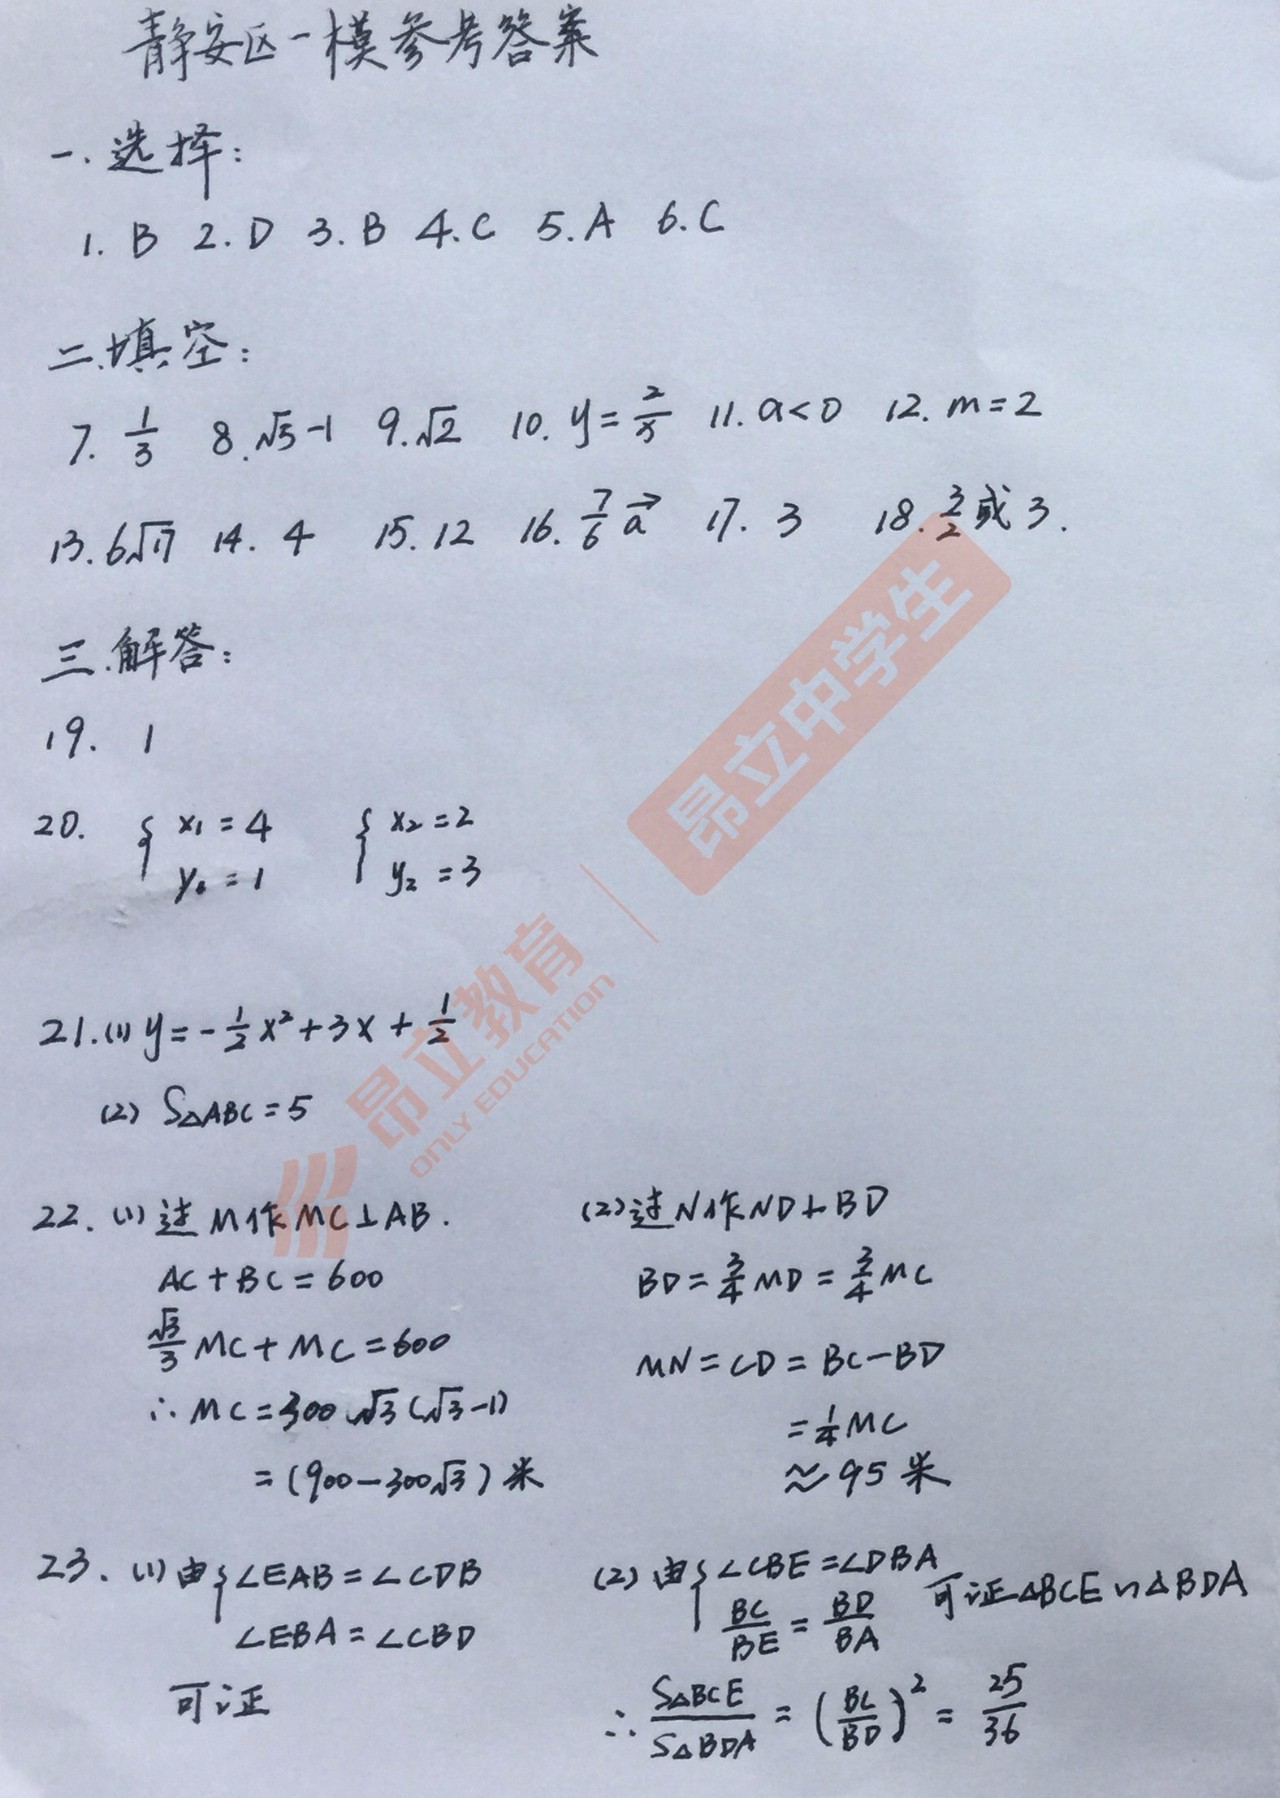 静安区一模参考答案
一.选择:
1. B 2. D 3. B 4. C 5. A 6. C
二.填空:
7. 1/3 8. √5-1 9. √2 10. y=2/x 11. a<0 12. m=2
13. 6√17 14. 4 15. 12 16. 7/6 a→ 17. 3 18. 3/2 或 3.
三.解答:
19. 1
20. { x₁=4 { x₂=2
y₁=1 y₂=3
21. (1) y=-1/2x²+3x+1/2
(2) S△ABC=5
22. (1) 过M作MC⊥AB.
AC+BC=600
√3/3 MC+MC=600
∴ MC=300√3(√3-1)
=(900-300√3)米
(2) 过N作ND⊥BD
BD=3/4MD=3/4MC
MN=CD=BC-BD
=1/4MC
≈95米
23. (1) 由{ ∠EAB=∠CDB
∠EBA=∠CBD
可证
(2) 由{ ∠CBE=∠DBA
BC/BE=BD/BA 可证△BCE∽△BDA
∴ S△BCE/S△BDA=(BC/BD)²=25/36
昂立教育
ONLY EDUCATION
昂立中学生